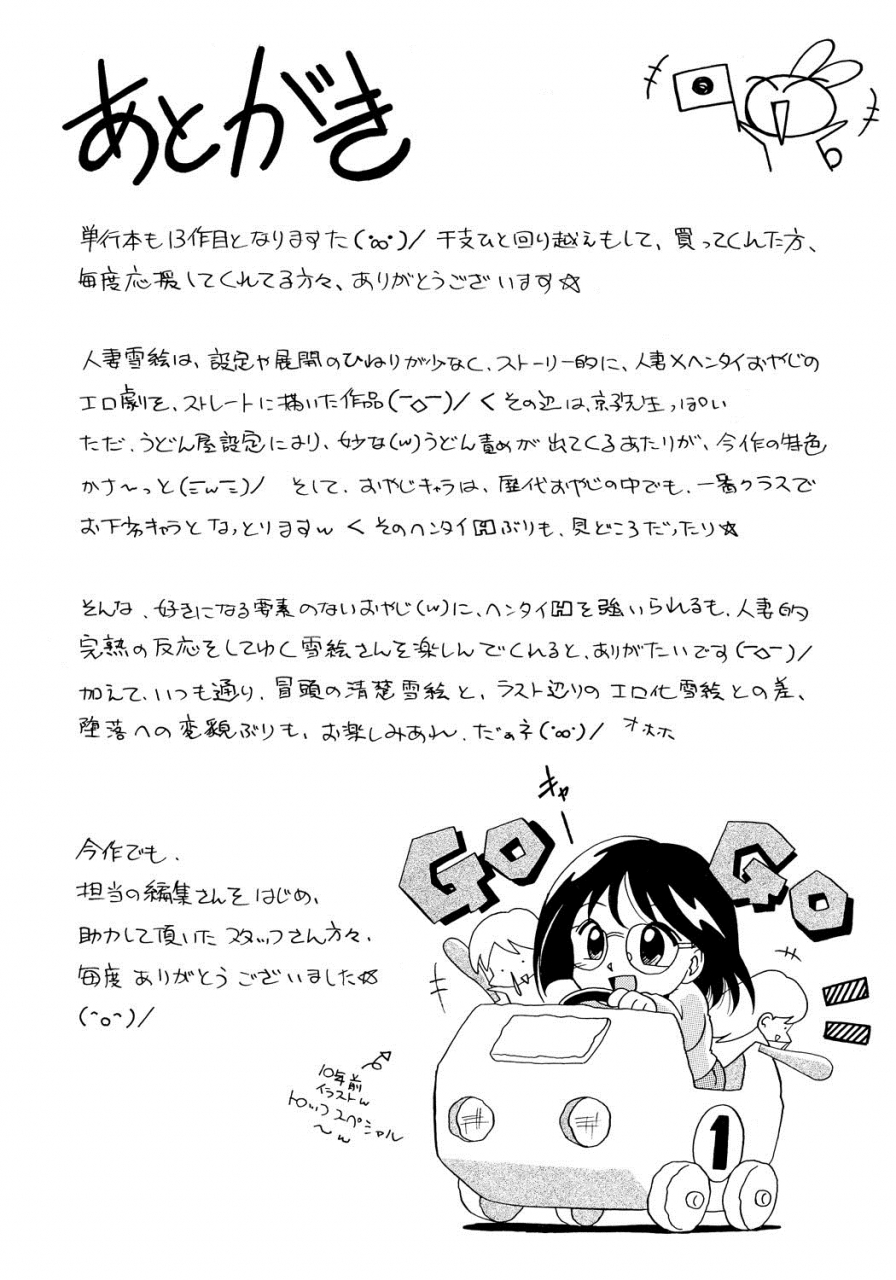 あとがき
単行本も13作目となりますた(°∞°)/ 干支ひと回り越えもして、買ってくれた方、
毎度応援してくれてる方々、ありがとうございます☆
人妻雪絵は、設定や展開のひねりが少なく、ストーリー的に、人妻×ヘンタイおやじの
エロ劇を、ストレートに描いた作品(￣◇￣)/ < その辺は、京子先生っぽい
ただ、うどん屋設定により、妙な(w)うどん責めが出てくるあたりが、今作の特色
かさ〜っと(ΞwΞ)/ そして、おやじキャラは、歴代おやじの中でも、一番クラスで
お下劣キャラとなっとりますw < そのヘンタイHぶりも、見どころだったり☆
そんな、好きになる要素のないおやじ(w)に、ヘンタイHを強いられるも、人妻的
完熟の反応をしてゆく雪絵さんを楽しんでくれると、ありがたいです(￣◇￣)/
加えて、いつも通り、冒頭の清楚雪絵と、ラスト辺りのエロ化雪絵との差、
堕落への変貌ぶりも、お楽しみあれ、だぁネ(°∞°)/ オホホ
今作でも、
担当の編集さんをはじめ、
助力して頂いたスタッフさん方々、
毎度ありがとうございました☆
(^o^)/
キャー
GO GO
10年前
イラストw
トロッコスペシャル
〜w
1